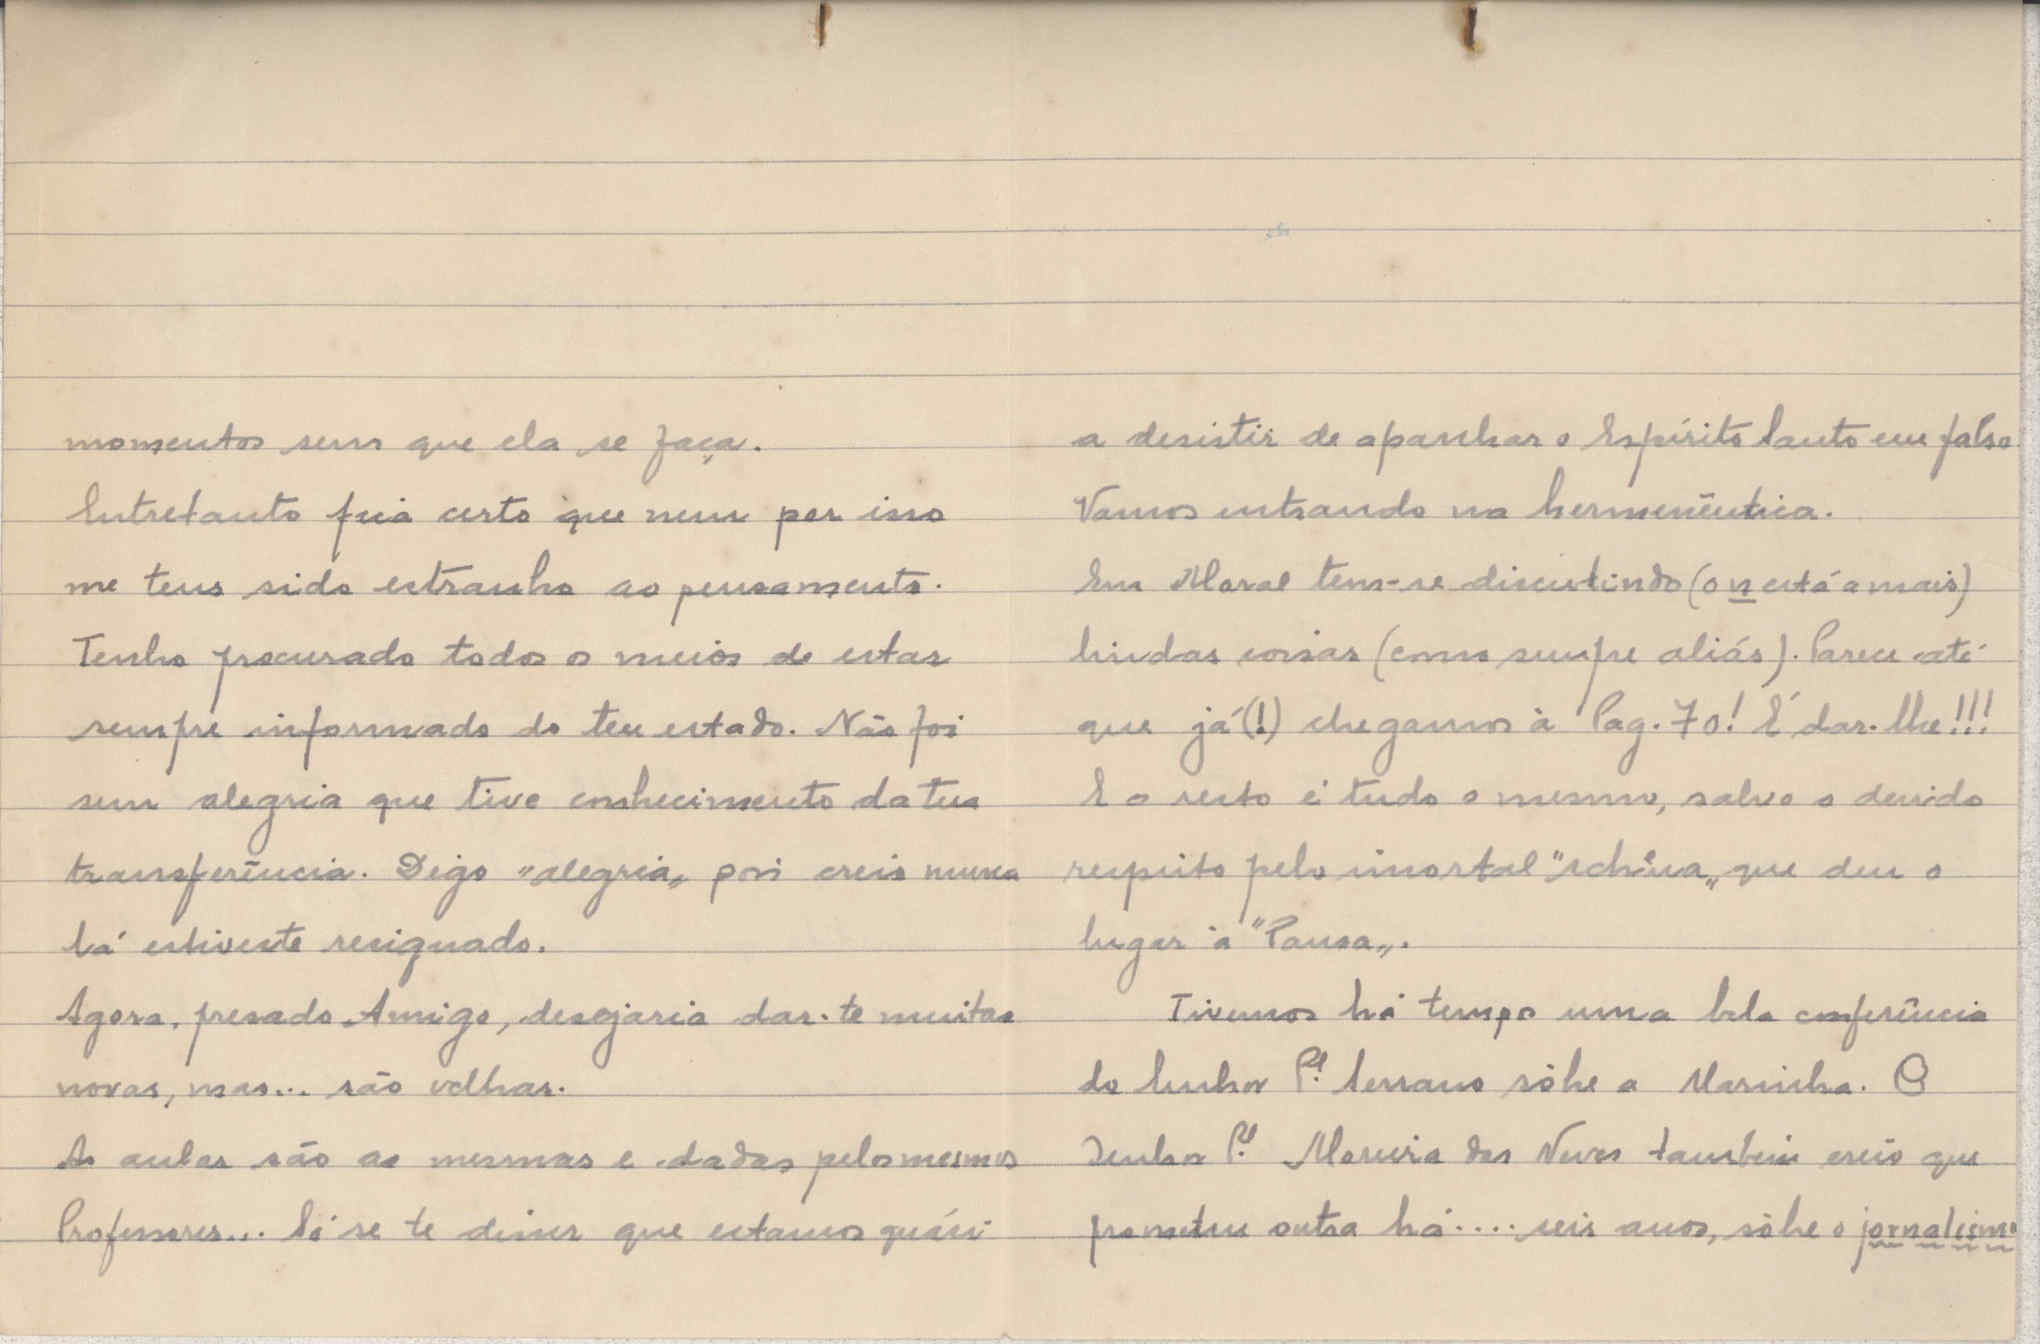 momentos sem que ela se faça.
Entretanto fica certo que nem por isso
me tens sido estranho ao pensamento.
Tenho procurado todos o meios de estar
sempre informado do teu estado. Não foi
sem alegria que tive conhecimento da tua
transferência. Digo "alegria„ pois creio nunca
lá estiveste resignado.
Agora, presado Amigo, desejaria dar-te muitas
novas, mas... são velhas.
As aulas são as mesmas e dadas pelos mesmos
Professores... Só se te disser que estamos quási
a desistir de apanhar o Espírito Santo em falso
Vamos entrando na hermenêutica.
Em Moral tem-se discutindo (o n está a mais)
lindas coisas (como sempre aliás). Parece até
que já (!) chegamos à Pag. 70! É dar-lhe!!!
E o resto é tudo o mesmo, salvo o devido
respeito pelo imortal que deu o
lugar à "Pausa„.
Tivemos há tempo uma bela conferência
do Senhor P.e Serrano sôbre a Marinha. O
Senhor P.e Moreira das Neves também creio que
prometeu outra há.... seis anos, sôbre o jornalismo